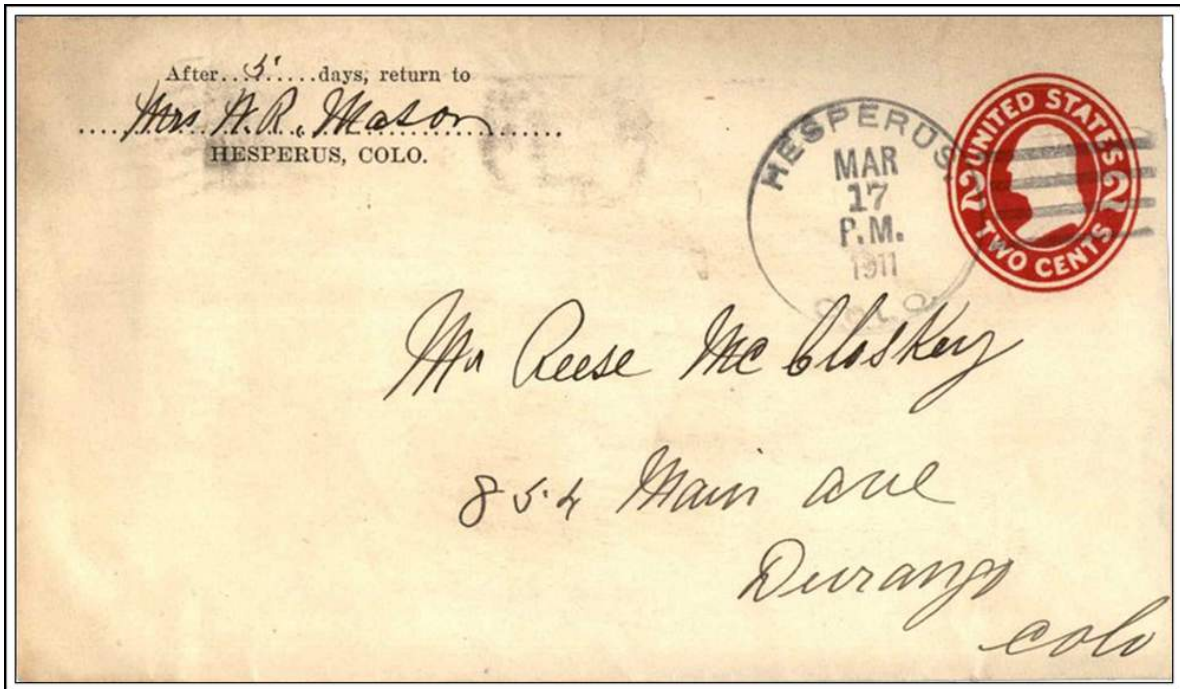 After....5.....days, return to
Mrs H. R. Mason
HESPERUS, COLO.
HESPERUS,
MAR
17
P.M.
1911
COLO.
UNITED STATES
2 2
TWO CENTS
Mr Reese McCloskey
854 Main ave
Durango
Colo